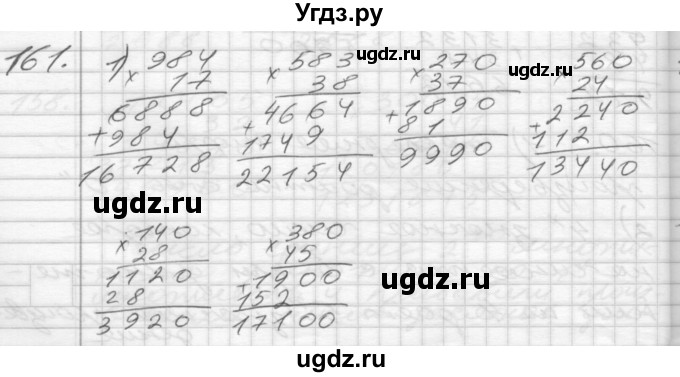 Угдз.ру
161. 1) × 984 × 583 × 270 × 560
17 38 37 24
6888 4664 1890 2240
+ 984 + 1749 + 81 + 112
16728 22154 9990 13440
ugdz.ru ugdz.ru
ugdz.ru ugdz.ru
× 140 × 380
28 45
1120 + 1900
28 152
3920 17100
ugdz.ru